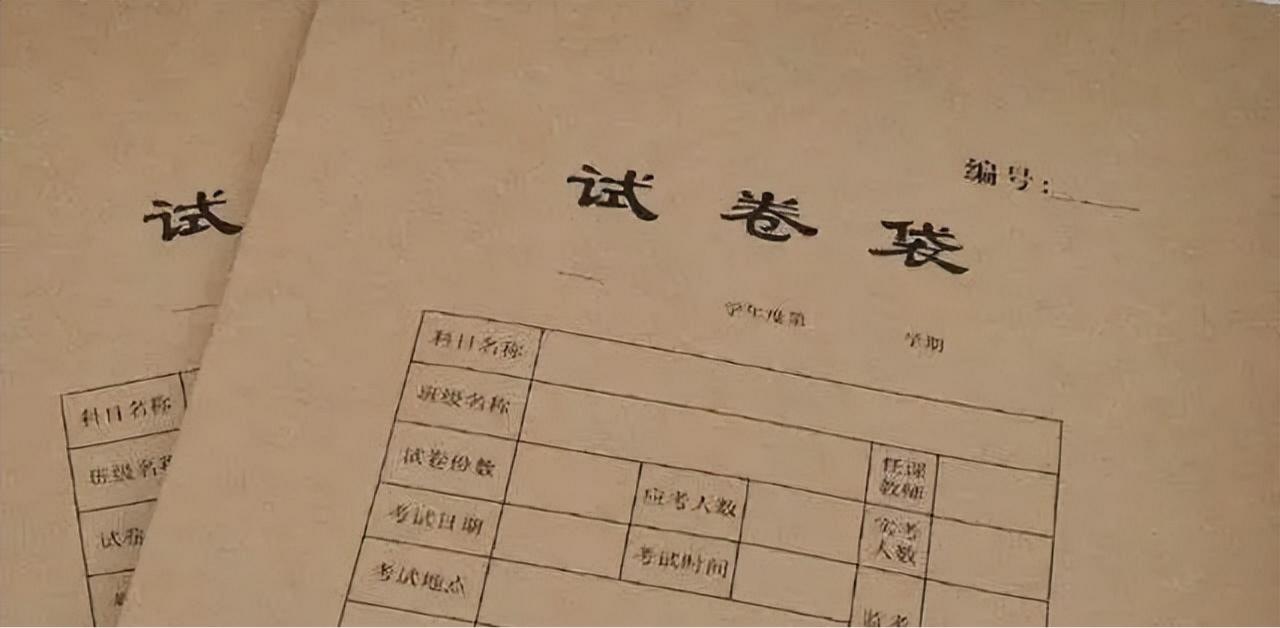 编号:
试卷袋
学年度第 学期
科目名称
班级名称 任课教师
试卷份数 应考人数 实考人数
考试日期 考试时间 监考
考试地点
试
科目名称
班级名称
试卷